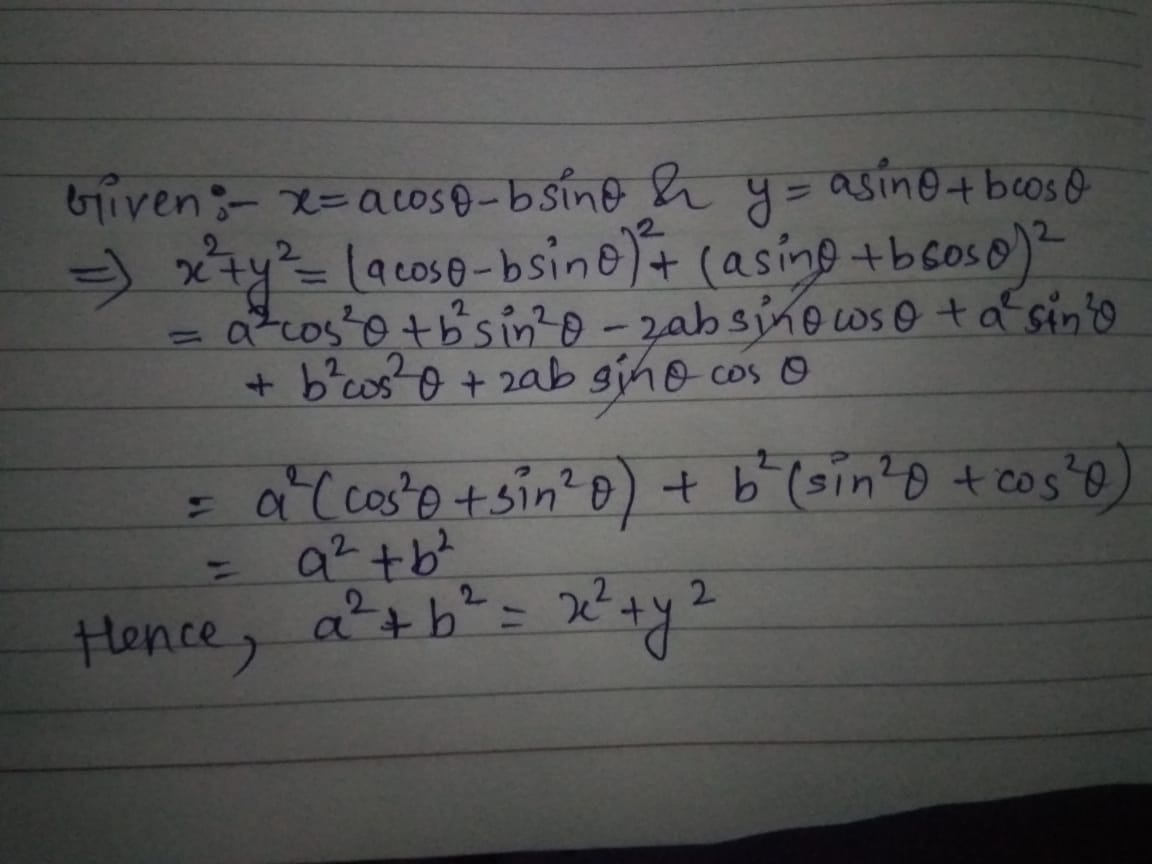 Given :- x = acosθ - b sinθ & y = asinθ + bcosθ
=> x²+y² = (acosθ - bsinθ)² + (asinθ + bcosθ)²
= a²cos²θ + b²sin²θ - 2ab sinθ cosθ + a² sin²θ
+ b²cos²θ + 2ab sinθ cos θ
= a²(cos²θ + sin²θ) + b²(sin²θ + cos²θ)
= a² + b²
Hence, a² + b² = x² + y²